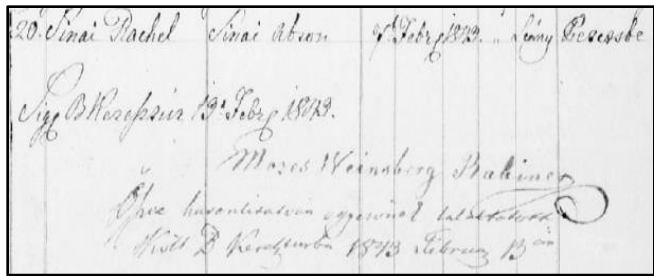 20. Sinai Rachel Sinai Abson 7t Febrg 1843. " Leány
Sigg B Kereszúr 13t Febrg 1843.
Moses Weinsberg Rabiner
Össze hasonlitatván egyezőnek találtatott
Költ B Kereszturba 1843 Február 13án